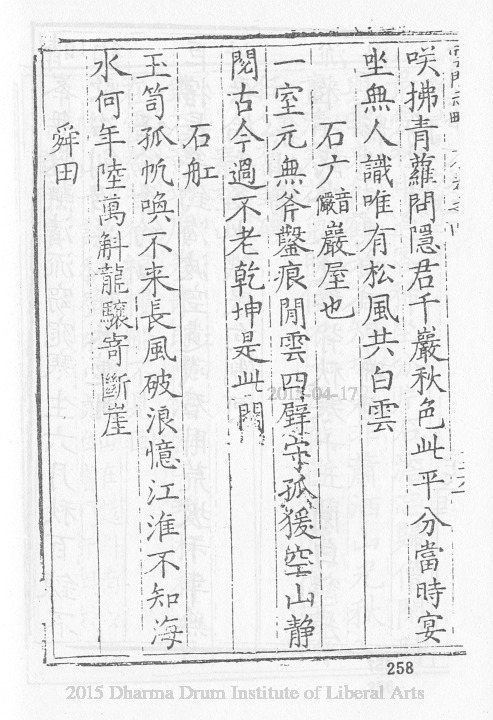 咲拂青蘿問隱君千巖秋色此平分當時宴
坐無人識唯有松風共白雲
石广音儼巖屋也
一室元無斧鑿痕閒雲四壁守孤猨空山静
閱古今過不老乾坤是此門
石舡
玉笥孤帆喚不来長風破浪憶江淮不知海
水何年陸萬斛龍驤寄斷崖
舜田
2015-04-17
258
2015 Dharma Drum Institute of Liberal Arts